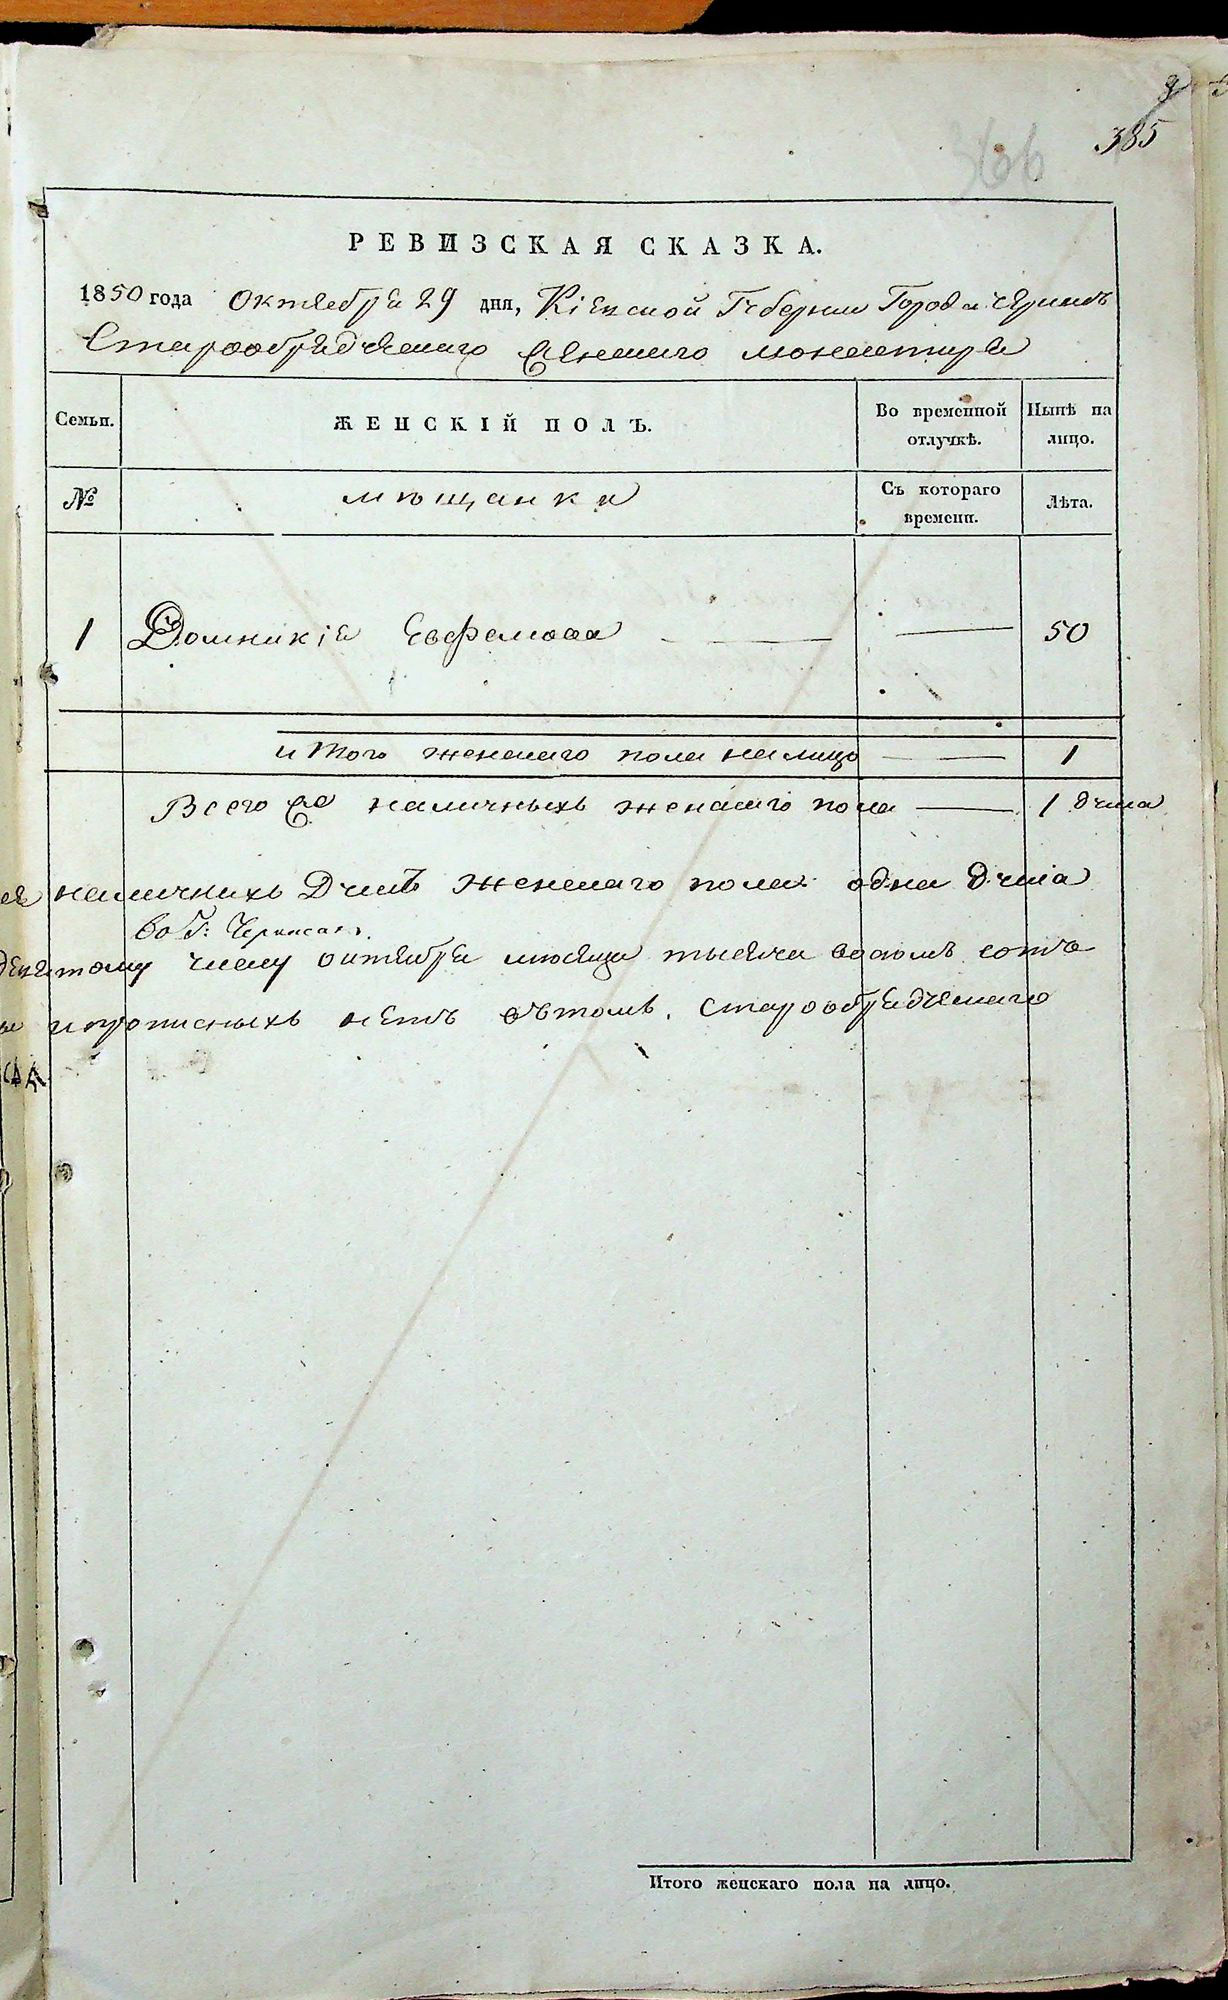 385
366
РЕВИЗСКАЯ СКАЗКА.
1850 года Октября 29 дня, Кіевской Губерніи Города
Старообрядческаго монастыря
Семьи.
ЖЕНСКІЙ ПОЛЪ.
Во временной отлучкѣ.
Нынѣ на лицо.
№
мѣщанка
Съ котораго времени.
Лѣта.
1 Домникія Евфемова 50
итого женскаго пола налицо 1
Всего наличныхъ женскаго пола 1 душа
наличнихъ Душъ женскаго пола одна душа
во Г: Черкасахъ
числу октября месяца тысяча восомъ сотъ
прописныхъ нетъ вътомъ. Старообрядческаго
Итого женскаго пола на лицо.